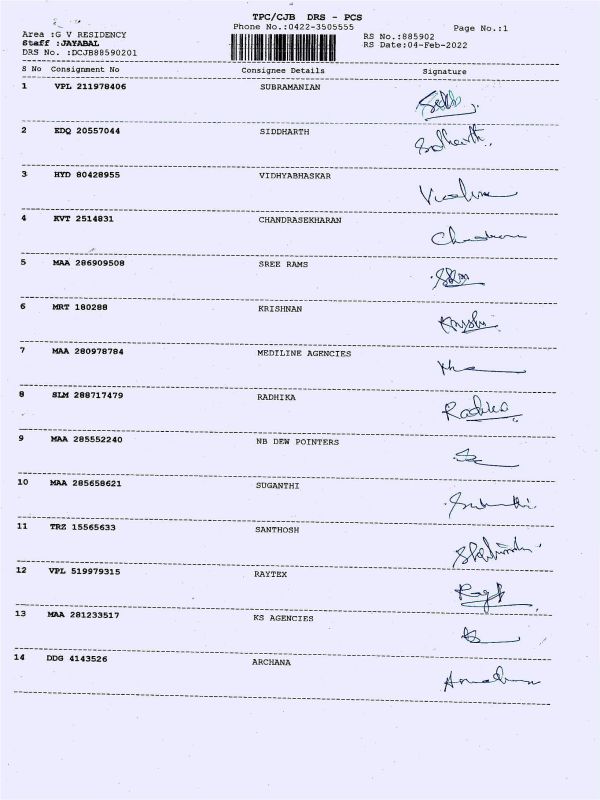 TPC/CJB DRS - PCS
Phone No.:0422-3505555
Page No.:1
Area :G V RESIDENCY
RS No.:885902
Staff :JAYABAL
RS Date:04-Feb-2022
DRS No. :DCJB88590201
S No Consignment No Consignee Details Signature
1 VPL 211978406 SUBRAMANIAN
2 EDQ 20557044 SIDDHARTH Siddharth
3 HYD 80428955 VIDHYABHASKAR
4 KVT 2514831 CHANDRASEKHARAN
5 MAA 286909508 SREE RAMS
6 MRT 180288 KRISHNAN
7 MAA 280978784 MEDILINE AGENCIES
8 SLM 288717479 RADHIKA
9 MAA 285552240 NB DEW POINTERS
10 MAA 285658621 SUGANTHI
11 TRZ 15565633 SANTHOSH
12 VPL 519979315 RAYTEX
13 MAA 281233517 KS AGENCIES
14 DDG 4143526 ARCHANA